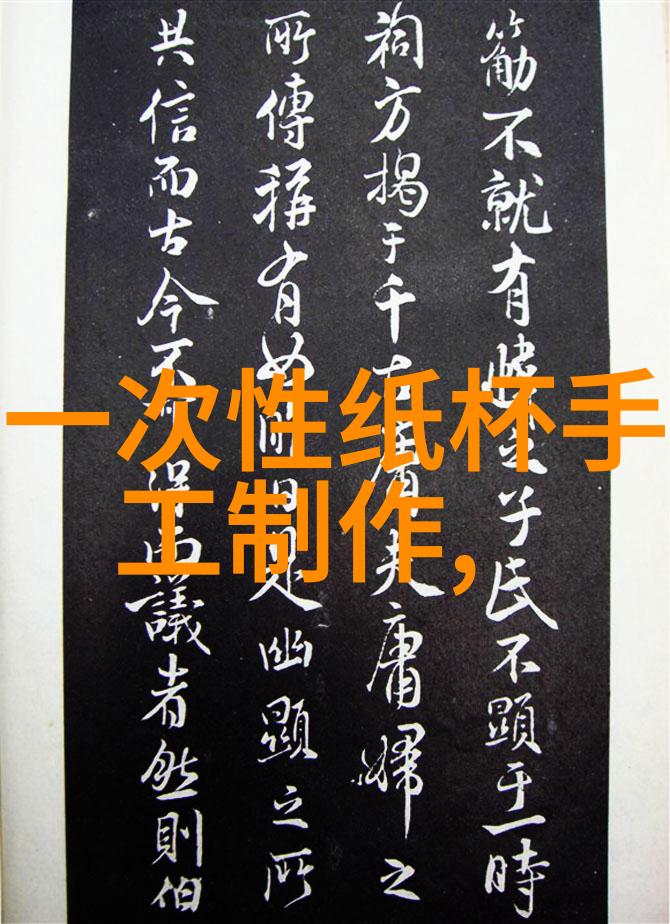 一次性纸杯手
工制作,
筋不就有
子氏不顯于一時
祠方揭于千古
夫庸婦之
所傳稱有如
幽顯之所
共信而古今不
議者然則伯